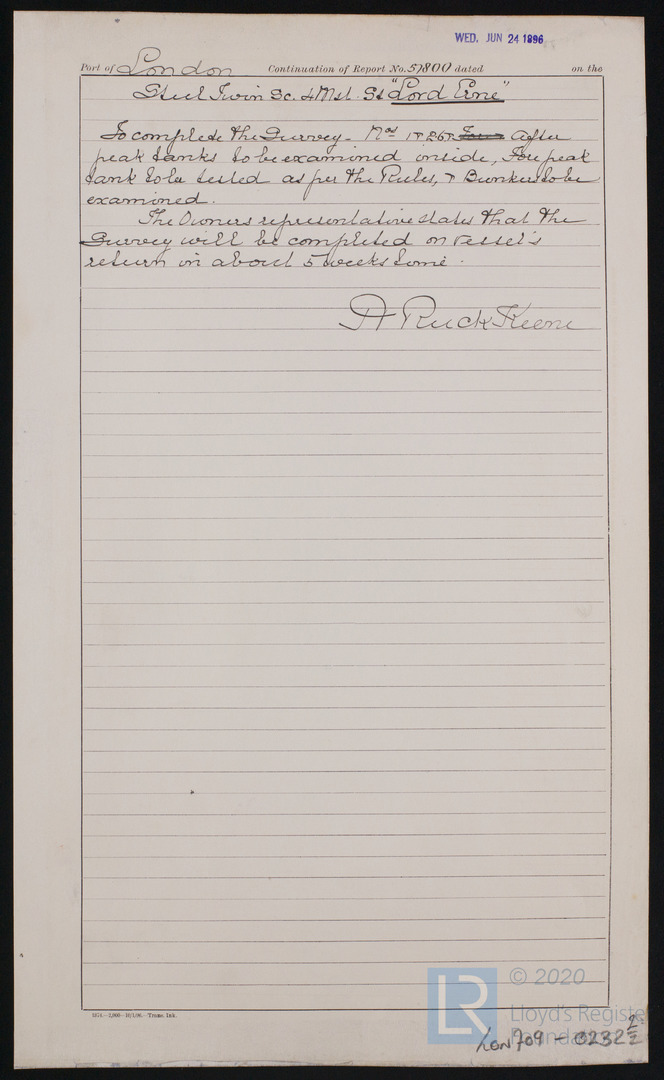 WED. JUN 24 1896
Port of London Continuation of Report No. 57800 dated on the
Steel Twin Sc. 4 Mst. St "Lord Erne"
To complete the Survey - Nos 1 & 2 & After
peak tanks to be examined inside, Fore peak
tank to be tested as per the Rules, & Bunkers to be
examined.
The Owners representative states that the
Survey will be completed on vessel's
return in about 5 weeks time.
H Ruck Keene
1174.-2,000-10/1/96.-Trans. Ink.
© 2020
LR
Lloyd's Register
Foundation
LON709 - 0232 2/2